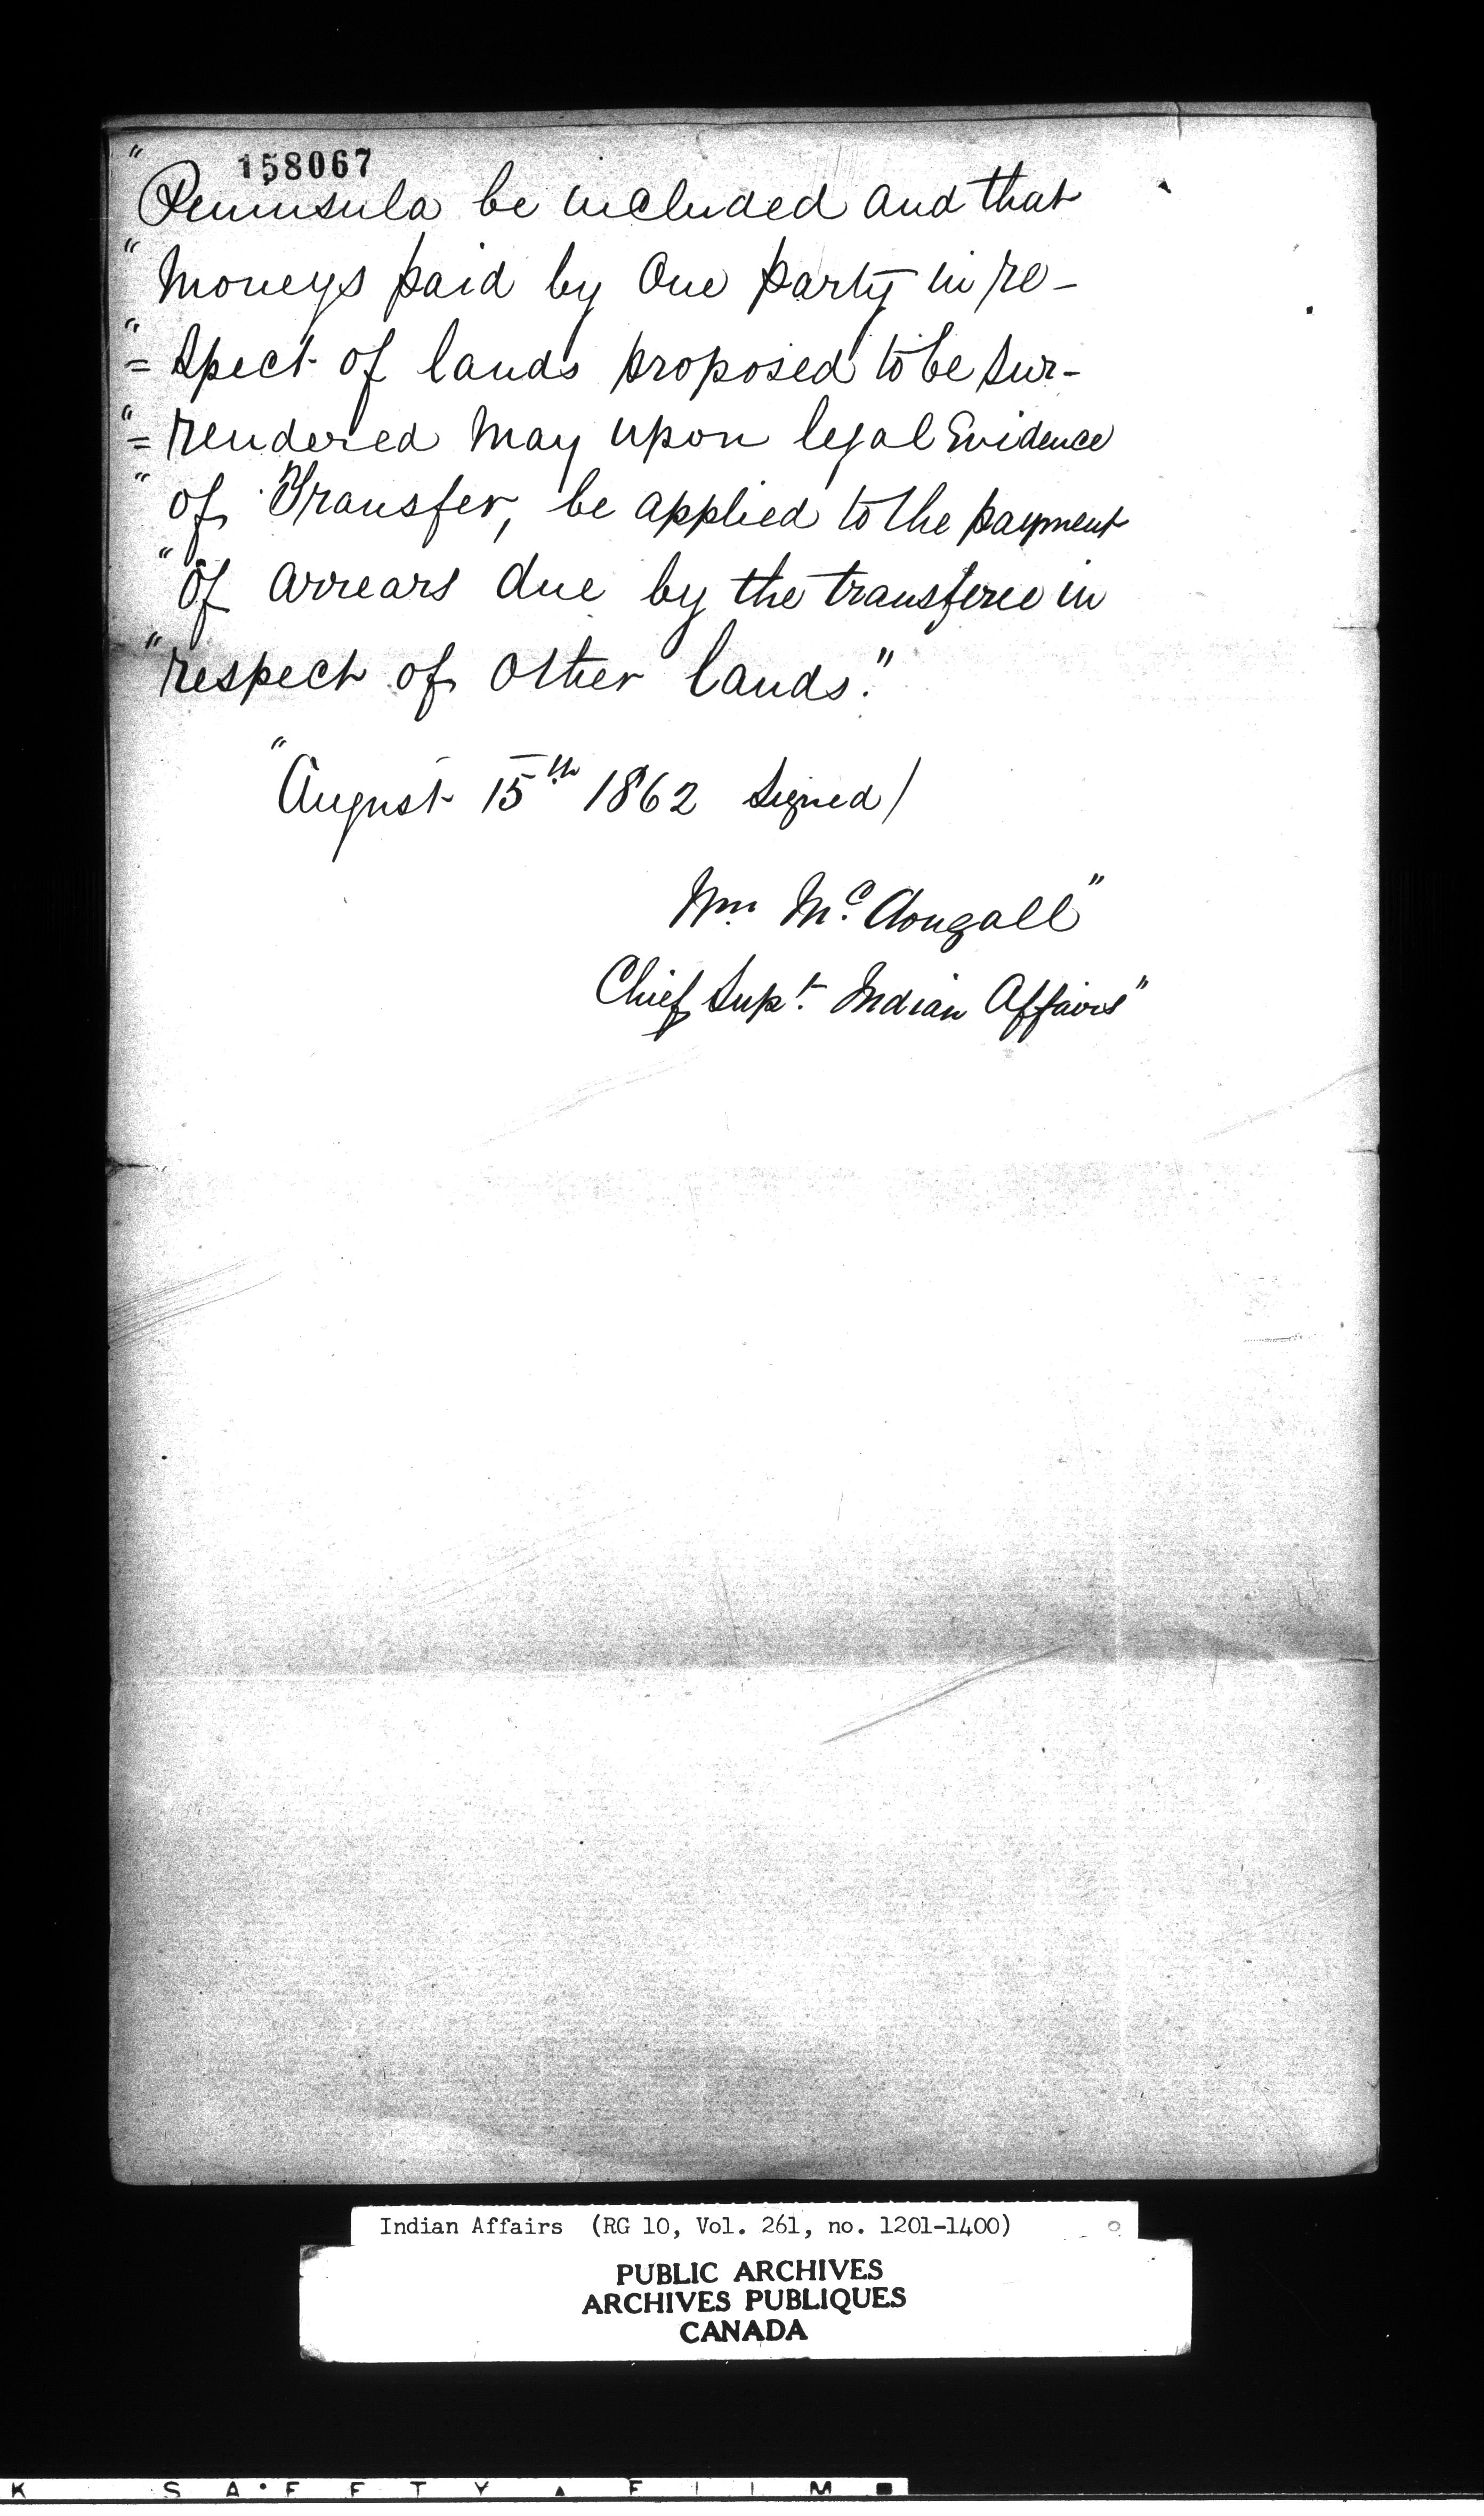 158067
" Peninsula be included and that
" Moneys paid by One party in re-
"= spect of lands proposed to be sur-
"= rendered May upon legal Evidence
" of Transfer, be applied to the payment
" of arrears due by the transferee in
" respect of other lands."
"August 15th 1862 Signed/
Wm McDougall"
Chief Supt. Indian Affairs"
Indian Affairs (RG 10, Vol. 261, no. 1201-1400)
PUBLIC ARCHIVES
ARCHIVES PUBLIQUES
CANADA
K SAFETY FILM